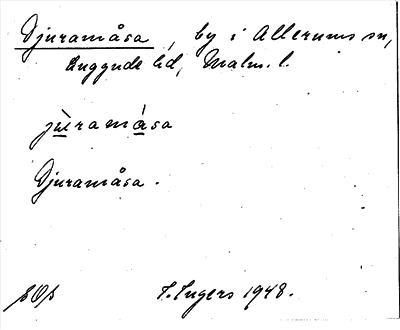 Djuramåsa, by i Allerums sn,
Luggude hd, Malm. l.
jùramåsa
Djuramåsa.
SOp I. Ingers 1948.